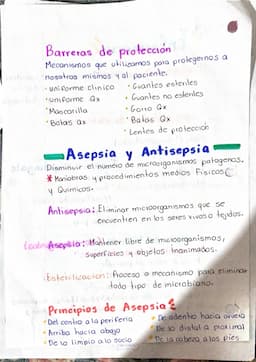 Barreras de protección
Mecanismos que utilizamos para protegernos a
nosotros mismos y al paciente.
· uniforme clinico
· uniforme Qx
· Mascarilla
· Botas qx
· Guantes esteriles
· Guantes no esteriles
· Gorro Qx
· Batas Qx
· Lentes de protección
Asepsia y Antisepsia
Disminuir el número de microorganismos patogenos.
* Maniobras y procedimientos medios Fisicos
y Quimicos.
Antisepsia: Eliminar microorganismos que se
encuentren en los seres vivos o tejidos.
Asepsia: Mantener libre de microorganismos,
superficies y objetos inanimados.
Esterilizacion: Proceso o mecanismo para eliminar
todo tipo de microbiano.
Principios de Asepsia
· Del centro a la periferia
· Arriba hacia abajo
· De lo limpio a lo sucio
· De adentro hacia afuera
· De lo distal a proximal
· De la cabeza a los pies